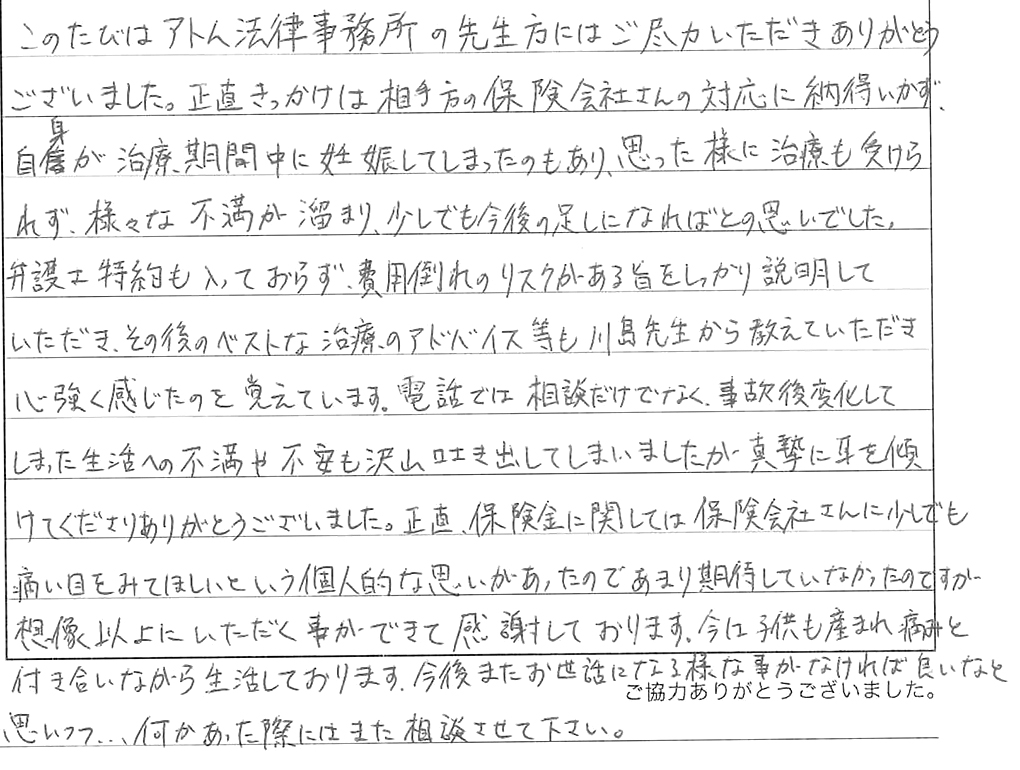 このたびはアトム法律事務所の先生方にはご尽力いただきありがとう
ございました。正直きっかけは相手方の保険会社さんの対応に納得いかず、
自身が治療期間中に妊娠してしまったのもあり、思った様に治療も受けら
れず、様々な不満が溜まり、少しでも今後の足しになればとの思いでした。
弁護士特約も入っておらず、費用倒れのリスクがある旨をしっかり説明して
いただき、その後のベストな治療のアドバイス等も川島先生から教えていただき
心強く感じたのを覚えています。電話では相談だけでなく、事故後変化して
しまった生活への不満や不安も沢山吐き出してしまいましたが真摯に耳を傾
けてくださりありがとうございました。正直、保険金に関しては保険会社さんに少しでも
痛い目をみてほしいという個人的な思いがあったのであまり期待していなかったのですが
想像以上にいただく事ができて感謝しております。今は子供も産まれ痛みと
付き合いながら生活しております。今後またお世話になる様な事がなければ良いなと
ご協力ありがとうございました。
思いつつ...何かあった際にはまた相談させて下さい。